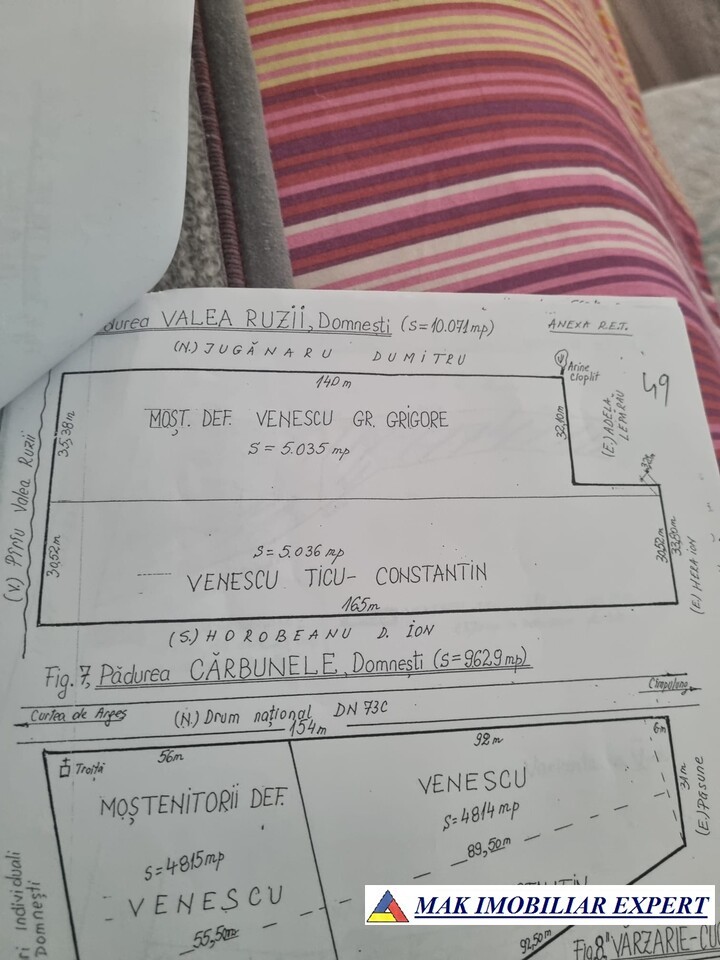 durea VALEA RUZII, Domnești (S=10.071mp)
ANEXA R.E.T.
(N.) JUGĂNARU DUMITRU
140 m
Arine
Cloplit
49
35,38m
MOȘT. DEF. VENESCU GR. GRIGORE
S = 5.035 mp
32,10m
(E.) ADELA
(V.) Pîrîu Valea Ruzii
30,52m
S = 5.036 mp
VENESCU TICU- CONSTANTIN
165m
30,52m
33,80m
(S.) HOROBEANU D. ION
Fig. 7, Pădurea CĂRBUNELE, Domnești (S=9629mp)
Curtea de Argeș
(N.) Drum național DN 73C
154m
56m
92m
6m
Troiță
MOȘTENITORII DEF.
VENESCU
S=4814mp
31m
(E.) Pășune
S=4815mp
89,50m
VENESCU
55,50m
92,50m
ri Individuali
Domnești
MAK IMOBILIAR EXPERT
Fig.8."VĂRZARIE-CU